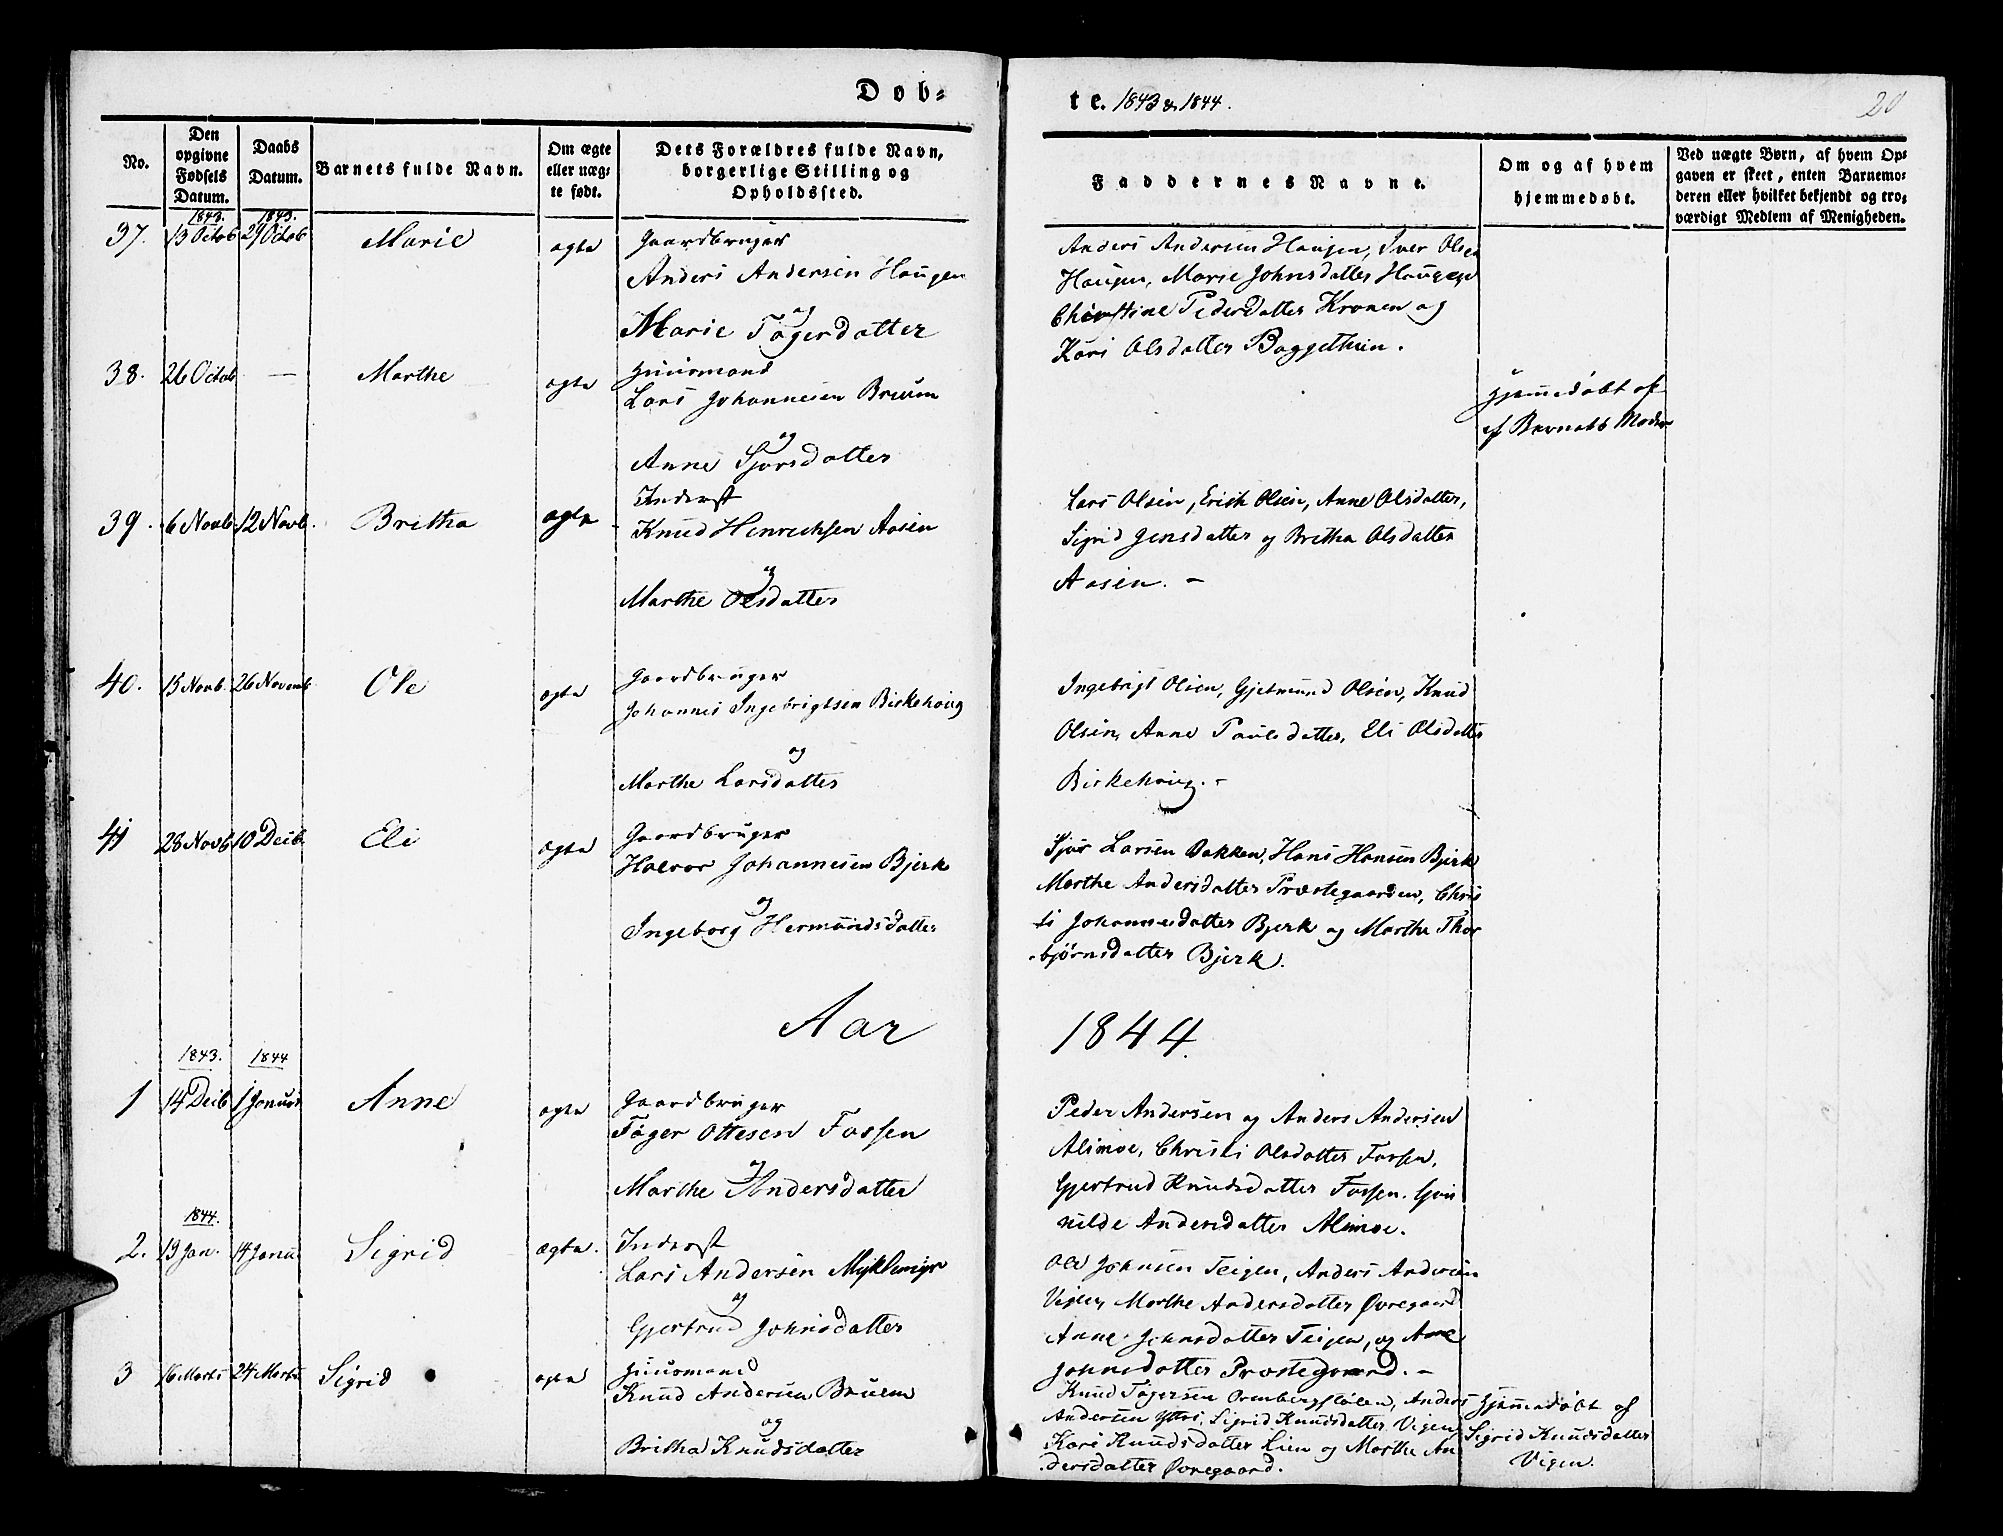 Døb=
te. 1843 & 1844.
20
No.
Den opgivne Fødsels Datum.
Daabs Datum.
Barnets fulde Navn.
Om ægte eller uæg= te født.
Dets Forældres fulde Navn, borgerlige Stilling og Opholdssted.
Faddernes Navne.
Om og af hvem hjemmedøbt.
Ved uægte Børn, af hvem Op=
gaven er skeet, enten Barnemo=
deren eller hvilket bekjendt og tro=
værdigt Medlem af Menigheden.
1843. 1843.
37. 13 Octob 29 Octob Marie ægte Gaardbruger
Anders Andersen Haugen
og
Marie Tøgersdatter
Anders Andersen Haugen, Iver Olsen
Haugen, Marie Johnsdatter Haugen
Christine Pedersdatter Kronen og
Kari Olsdatter Baggethun.
38. 26 Octob — Marthe ægte Huusmand
Lars Johannesen Bruum
og
Anne Sjursdatter
Hjemmedøbt af
af Barnets Moder
39. 6 Novb. 12 Novb. Britha ægte Inderst
Knud Henrichsen Aasen
og
Marthe Olsdatter
Lars Olsen, Erich Olsen, Anne Olsdatter,
Sigrid Jensdatter og Britha Olsdatter
Aasen. —
40. 15 Novb. 26 Novemb Ole ægte Gaardbruger
Johannes Ingebrigtsen Birkehoug
og
Marthe Larsdatter
Ingebrigt Olsen, Gjetmund Olsen, Knud
Olsen, Anne Paulsdatter, Eli Olsdatter
Birkehoug. —
41 28 Novb 10 Decb. Eli ægte Gaardbruger
Halvor Johannesen Bjerk
og
Ingeborg Hermundsdatter
Sjur Larsen Bakken, Hans Hansen Bjerk
Marthe Andersdatter Præstegaarden, Chris
ti Johannesdatter Bjerk og Marthe Thor
bjørnsdatter Bjerk.
Aar 1844.
1843. 1844
1 14 Decb 1 Januar Anne ægte Gaardbruger
Tøger Ottesen Fossen
og
Marthe Andersdatter
Peder Andersen og Anders Andersen
Alimoe, Christi Olsdatter Fossen,
Gjertrud Knudsdatter Fossen. Gun
nilde Andersdatter Alimoe.
1844.
2. 13 Jan. 14 Janu. Sigrid ægte. Inderst
Lars Andersen
og
Gjertrud Johnsdatter
Ole Johnsen Teigen, Anders Andersen
Vigen, Marthe Andersdatter Øvregaard
Anne Johnsdatter Teigen, og Ane
Johnsdatter Præstegaard. —
3 16 Marts 24 Marts Sigrid ægte Huusmand
Knud Andersen Bruum
og
Britha Knudsdatter
Knud Tøgersen Ormbergstølen, Anders
Andersen Yttri, Sigrid Knudsdatter Vigen
Kari Knudsdatter Lien og Marthe An
dersdatter Øvregaard.
Hjemmedøbt af
Sigrid Knudsdatter
Vigen.